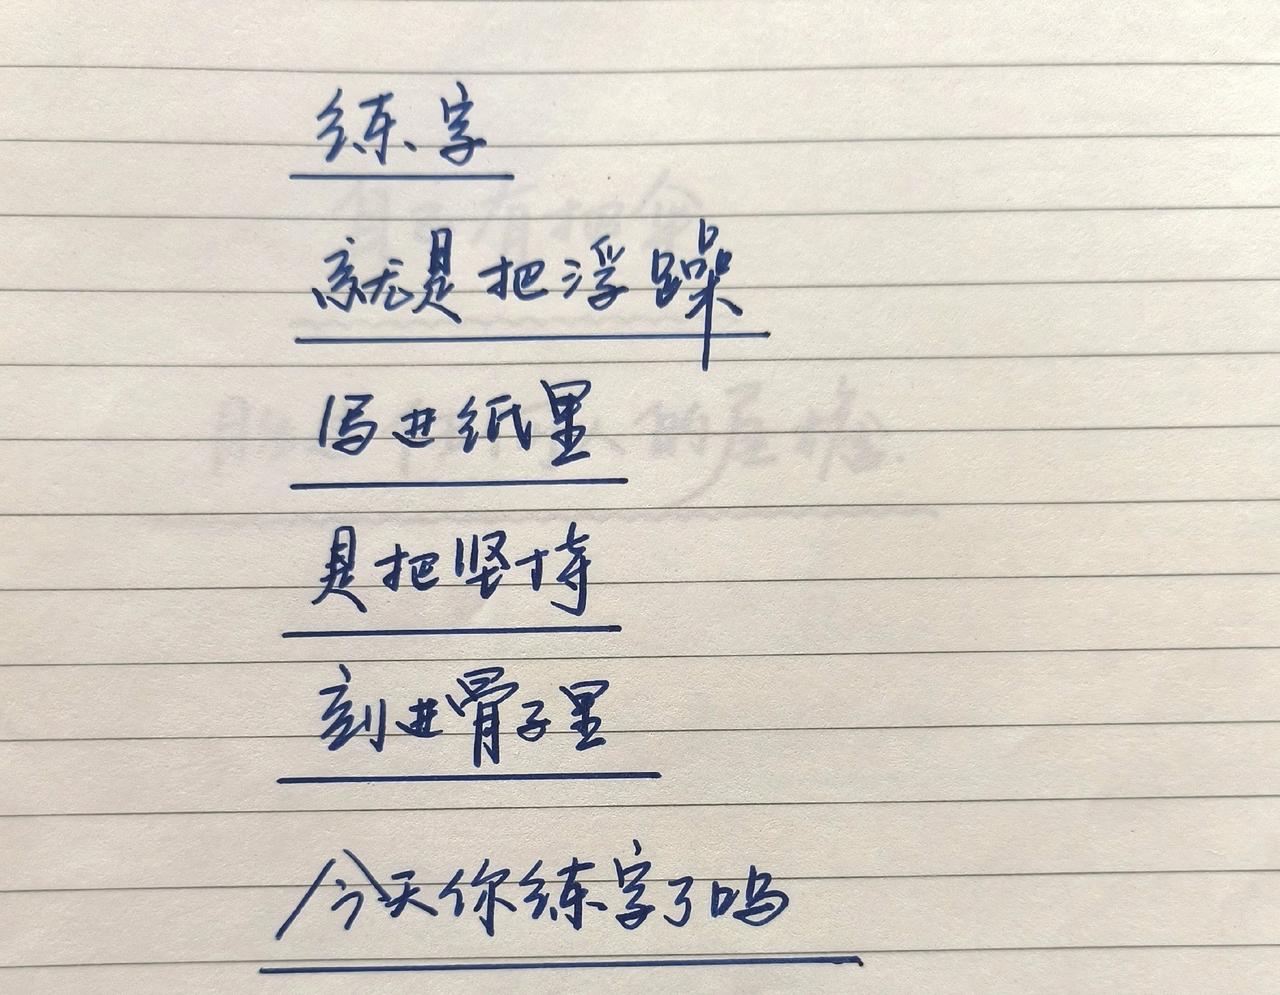 练字
就是把浮躁
写进纸里
是把坚持
刻进骨子里
今天你练字了吗